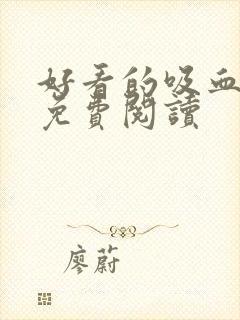 好看的吸血
免費閱讀
廖蔚